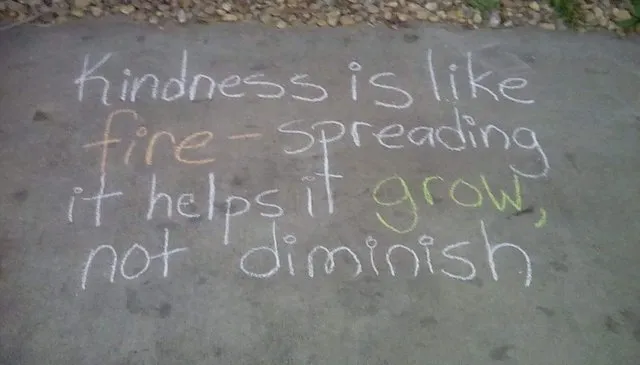 Kindness is like
fire - spreading
it helps it grow,
not diminish